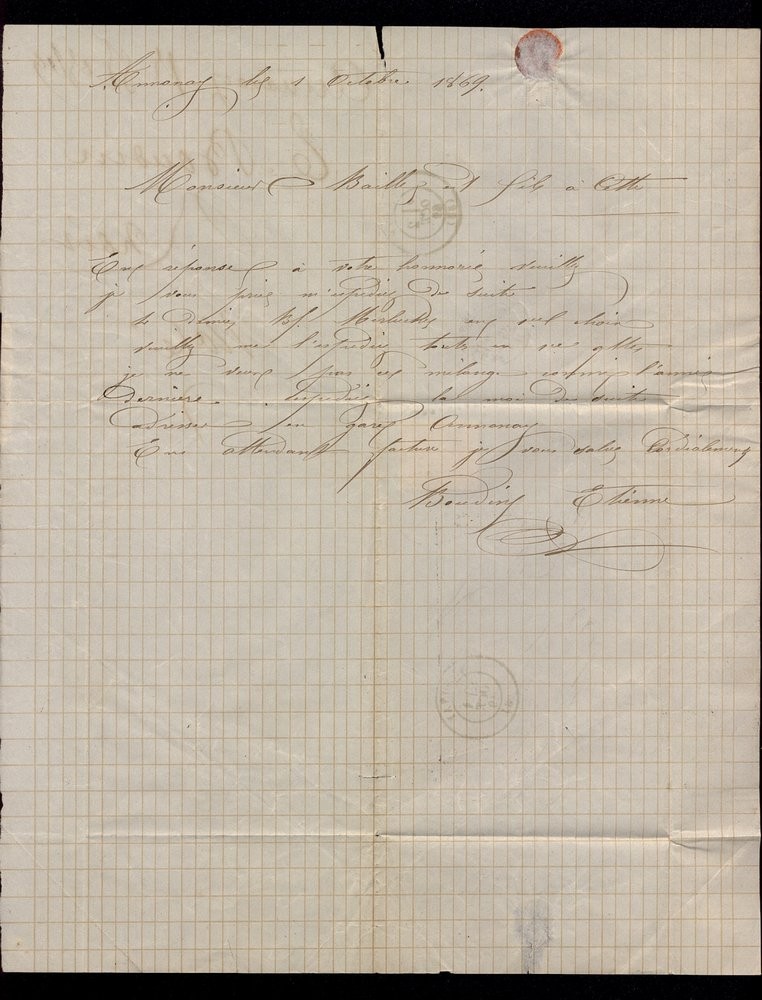 Annonay le 1 Octobre 1869.
Monsieur Baille et fils à Cette
En réponse à votre honnorée veuillez
je vous prie m'expédiez de suite
Bf. Merluches en bel choix
veuillez me l'expedier toute un
je ne veux pas de mélange comme l'année
dernière. Expédiez la moi de suite
adresser en gare Annonay
En attendant facture je vous salue Cordialement
Boudin Etienne